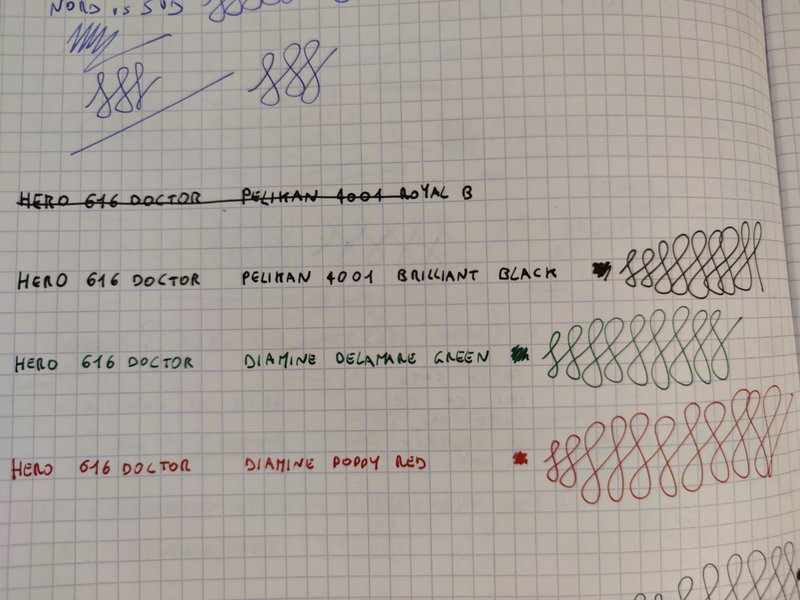 NORD vs SUD
HERO 616 DOCTOR PELIKAN 4001 ROYAL B
HERO 616 DOCTOR PELIKAN 4001 BRILLIANT BLACK
HERO 616 DOCTOR DIAMINE DELAMARE GREEN
HERO 616 DOCTOR DIAMINE POPPY RED